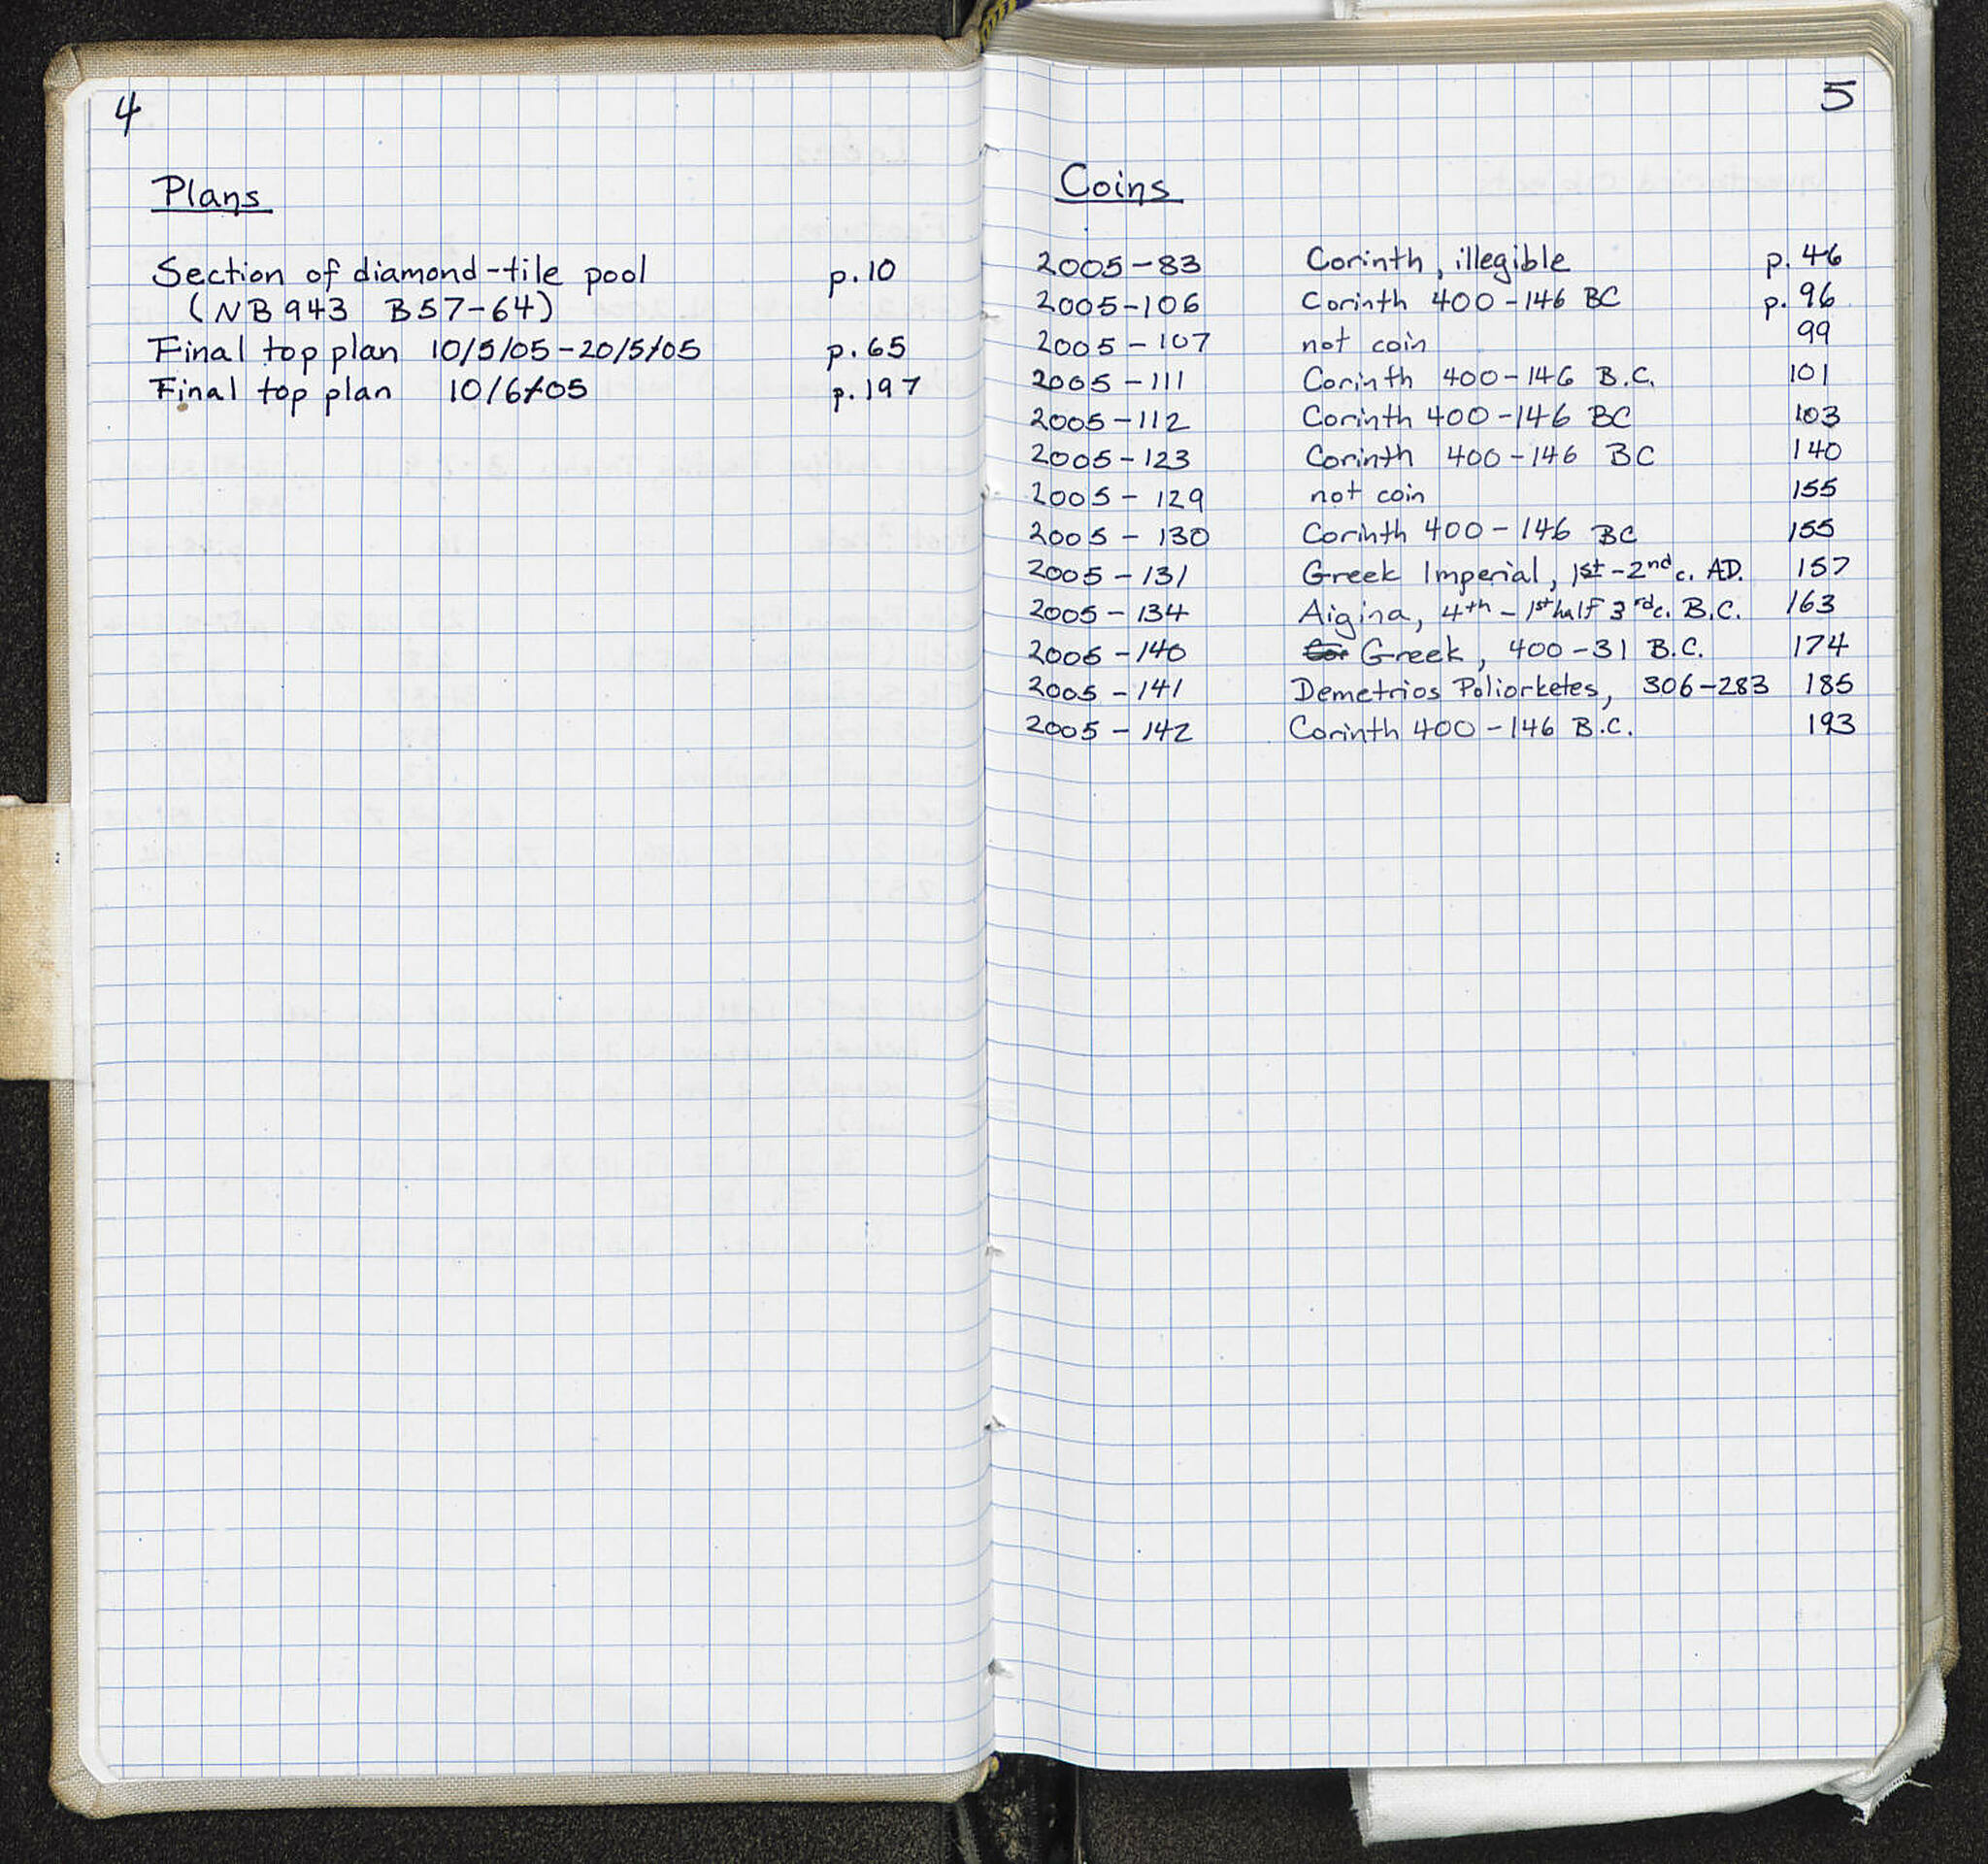 4
Plans
Section of diamond-tile pool p.10
(NB 943 B57-64)
Final top plan 10/5/05-20/5/05 p.65
Final top plan 10/6/05 p.197
5
Coins
2005-83 Corinth, illegible p. 46
2005-106 Corinth 400-146 BC p. 96
2005-107 not coin 99
2005-111 Corinth 400-146 B.C. 101
2005-112 Corinth 400-146 BC 103
2005-123 Corinth 400-146 BC 140
2005-129 not coin 155
2005-130 Corinth 400-146 BC 155
2005-131 Greek Imperial, 1st-2nd c. AD. 157
2005-134 Aigina, 4th-1st half 3rd c. B.C. 163
2005-140 Cor Greek, 400-31 B.C. 174
2005-141 Demetrios Poliorketes, 306-283 185
2005-142 Corinth 400-146 B.C. 193